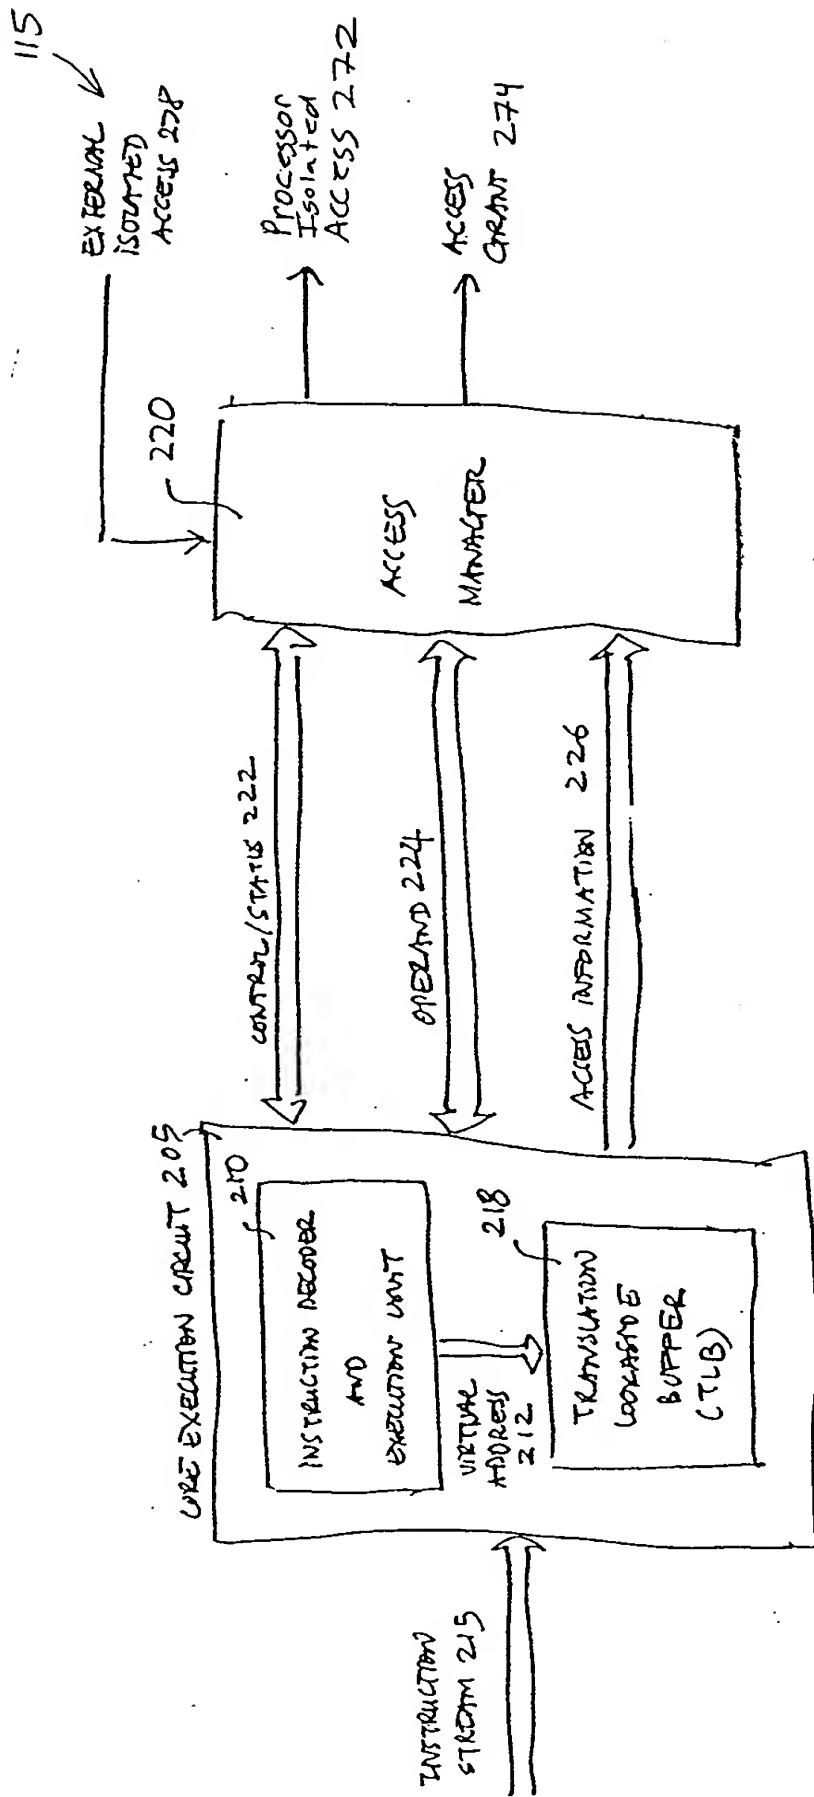 115
EXTERNAL
ISOLATED
ACCESS 278
Processor
Isolated
ACCESS 272
ACCESS
GRANT 274
220
ACCESS
MANAGER
CONTROL/STATUS 222
OPERAND 224
ACCESS INFORMATION 226
CORE EXECUTION CIRCUIT 205
210
INSTRUCTION DECODER
AND
EXECUTION UNIT
VIRTUAL
ADDRESS
212
218
TRANSLATION
LOOKASIDE
BUFFER
(TLB)
INSTRUCTION
STREAM 215